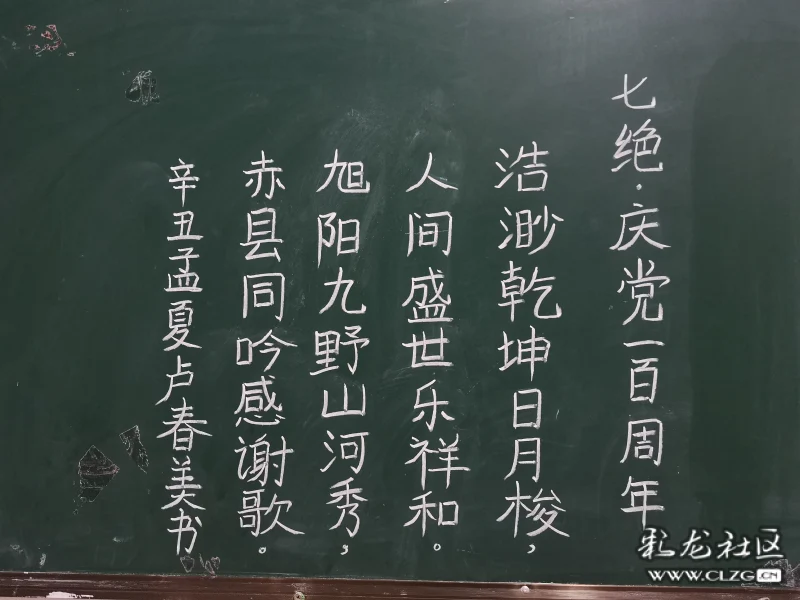 七绝·庆党一百周年
浩渺乾坤日月梭，
人间盛世乐祥和。
旭阳九野山河秀，
赤县同吟感谢歌。
辛丑孟夏卢春美书
彩龙社区
WWW.CLZG.CN